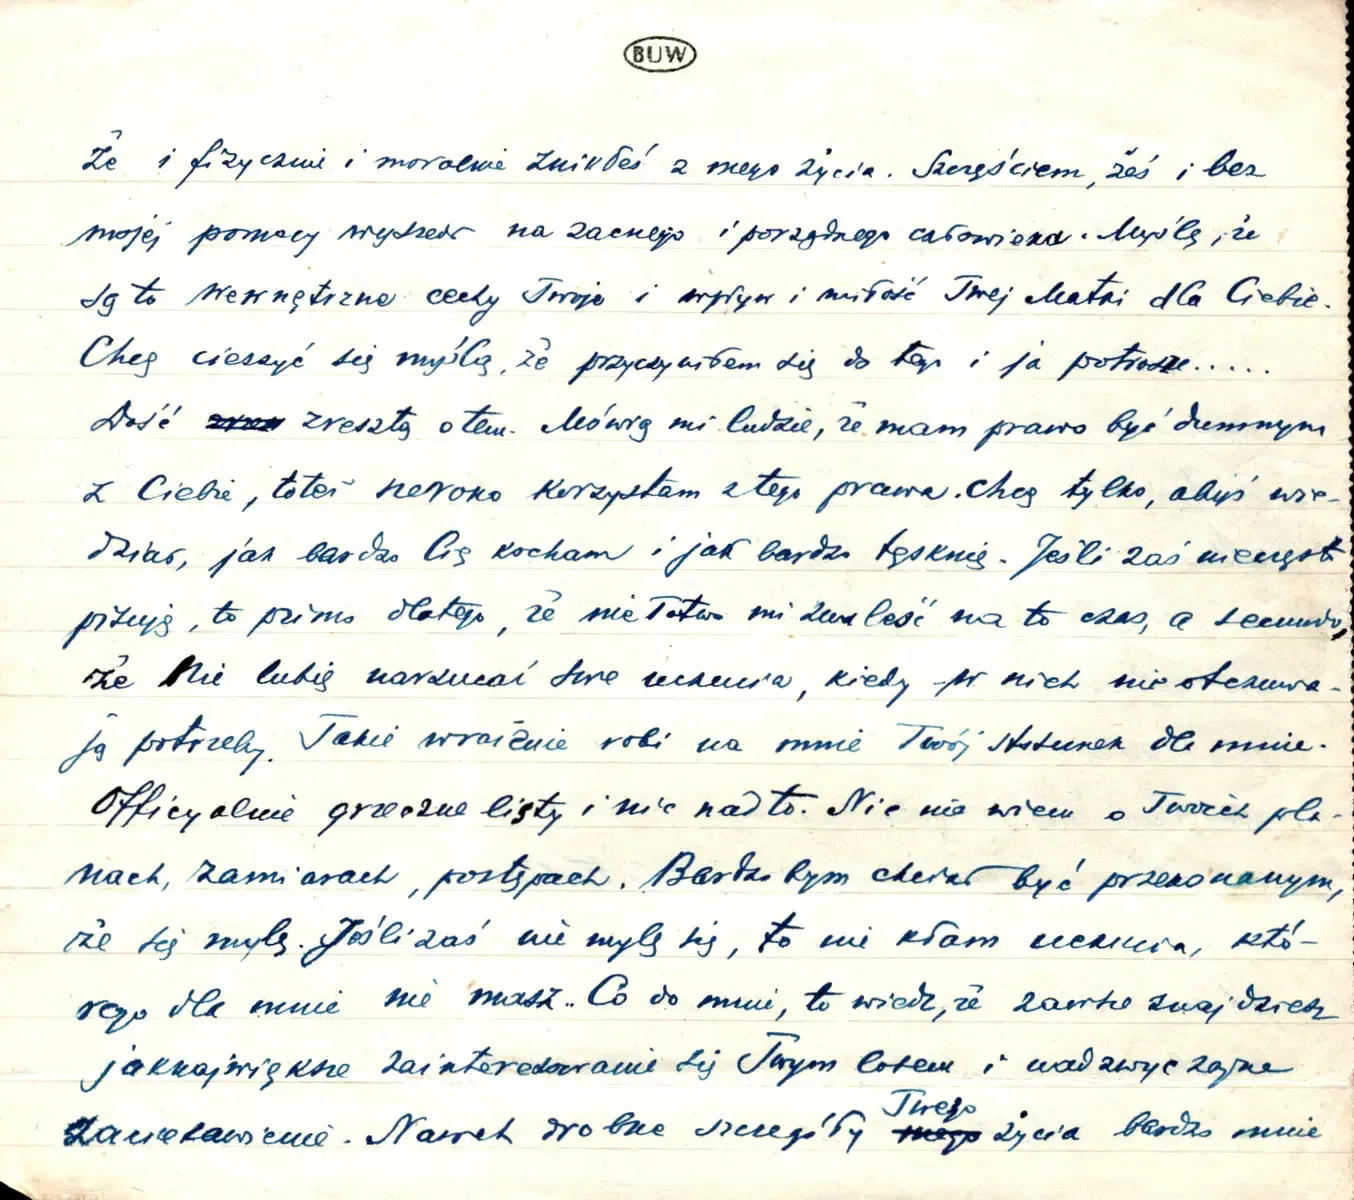 BUW
że i fizycznie i moralnie znikłeś z mego życia. Szczęściem, żeś i bez
mojej pomocy wyszedł na zacnego i porządnego człowieka. Myślę, że
są to wewnętrzne cechy Twoje i wpływ i miłość Twej Matki dla Ciebie.
Chcę cieszyć się myślą, że przyczyniłem się do tego i ja potrosze.....
Dość zresztą o tem. Mówią mi ludzie, że mam prawo być dumnym
z Ciebie, toteż szeroko korzystam z tego prawa. Chcę tylko, abyś wie-
dział, jak bardzo Cię kocham i jak bardzo tęsknię. Jeśli zaś nieczęsto
pisuję, to primo dlatego, że nie łatwo mi znaleść na to czas, a secundo,
że nie lubię narzucać swe uczucia, kiedy w nich nie odczuwa-
ją potrzeby. Takie wrażenie robi na mnie Twój stosunek dla mnie.
Officyalnie grzeczne listy i nic nadto. Nic nie wiem o Twoich pla-
nach, zamiarach, postępach. Bardzo bym chciał być przekonanym,
że się mylę. Jeśli zaś nie mylę się, to nie kłam uczucia, któ-
rego dla mnie nie masz.. Co do mnie, to wiedz, że zawsze znajdziesz
jaknajwiększe zainteresowanie się Twym losem i nadzwyczajne
zaciekawienie. Nawet drobne szczegóły Twego życia bardzo mnie